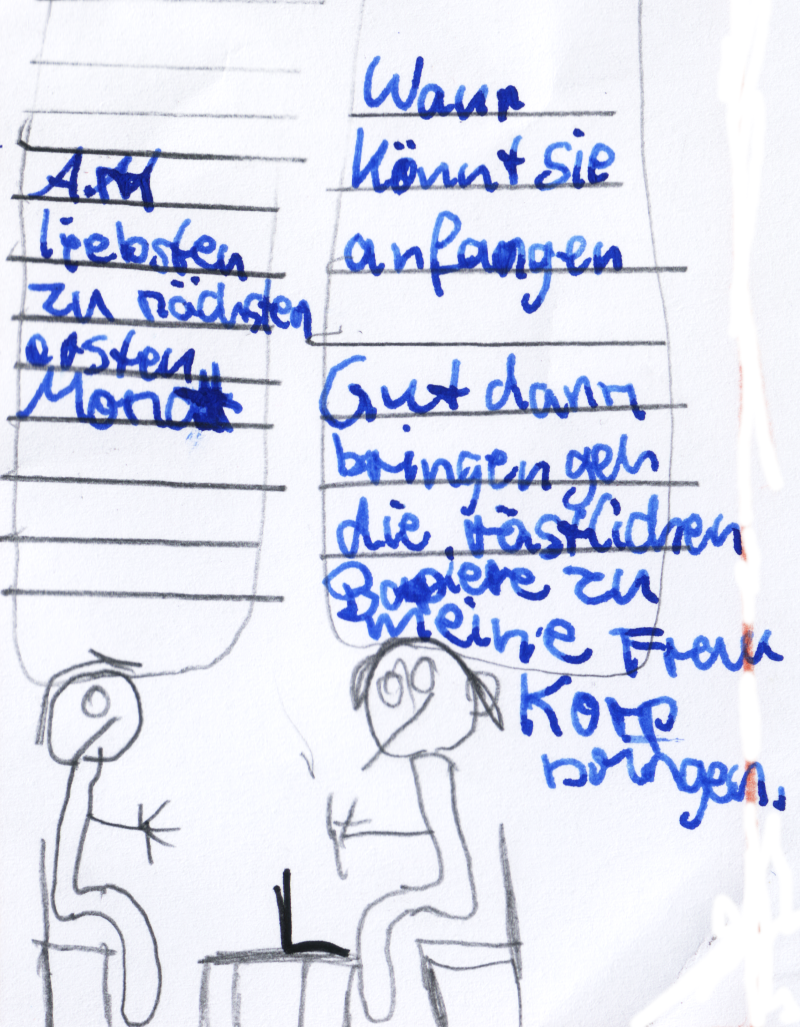 Wann
könnt sie
anfangen
Am
liebsten
zu nächsten
ersten
Monat
Gut dann
bringen geh
die rästlichen
Bapiere zu
meine Frau
Korp
bringen.